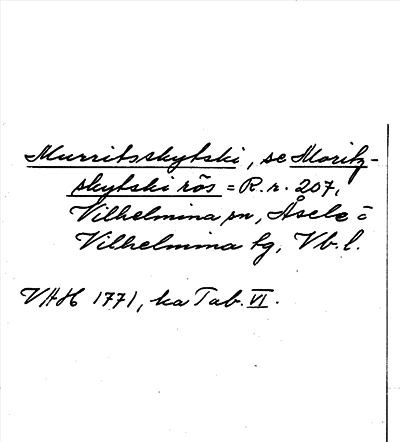 Murritsskytski, se Moritz-
skytski rös = R.r. 207,
Vilhelmina sn, Åsele o
Vilhelmina tg, Vb.l.
VAH 1771, ka Tab. VI.